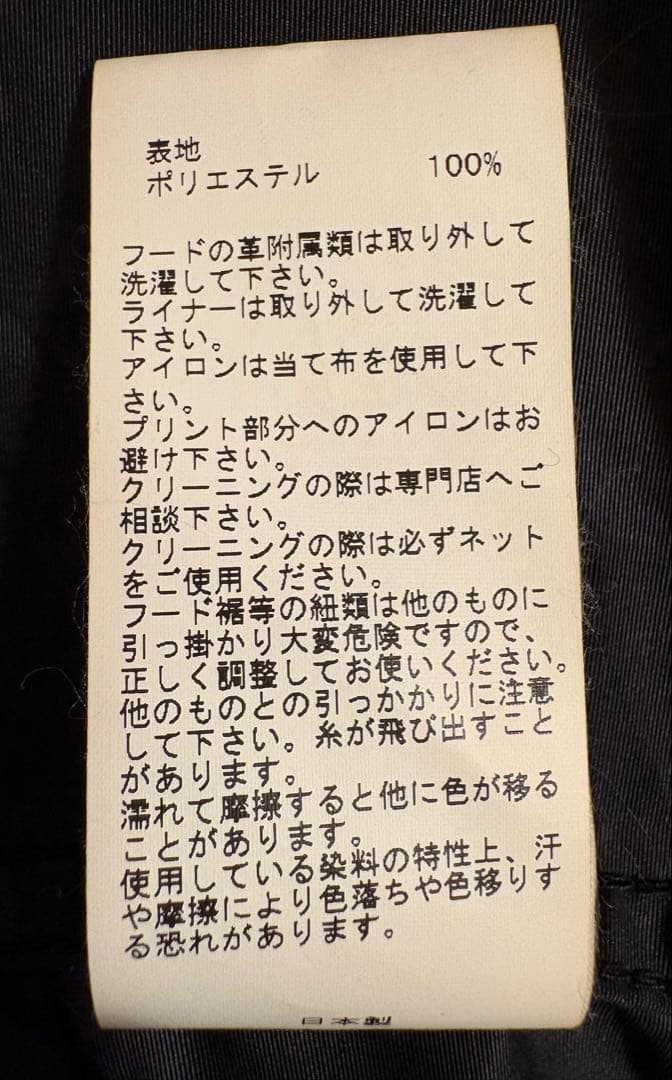 表地
ポリエステル 100%
フードの革附属類は取り外して
洗濯して下さい。
ライナーは取り外して洗濯して
下さい。
アイロンは当て布を使用して下
さい。
プリント部分へのアイロンはお
避け下さい。
クリーニングの際は専門店へご
相談下さい。
クリーニングの際は必ずネット
をご使用ください。
フード裾等の紐類は他のものに
引っ掛かり大変危険ですので、
正しく調整してお使いください。
他のものとの引っかかりに注意
して下さい。糸が飛び出すこと
があります。
濡れて摩擦すると他に色が移る
ことがあります。
使用している染料の特性上、汗
や摩擦により色落ちや色移りす
る恐れがあります。
日本製